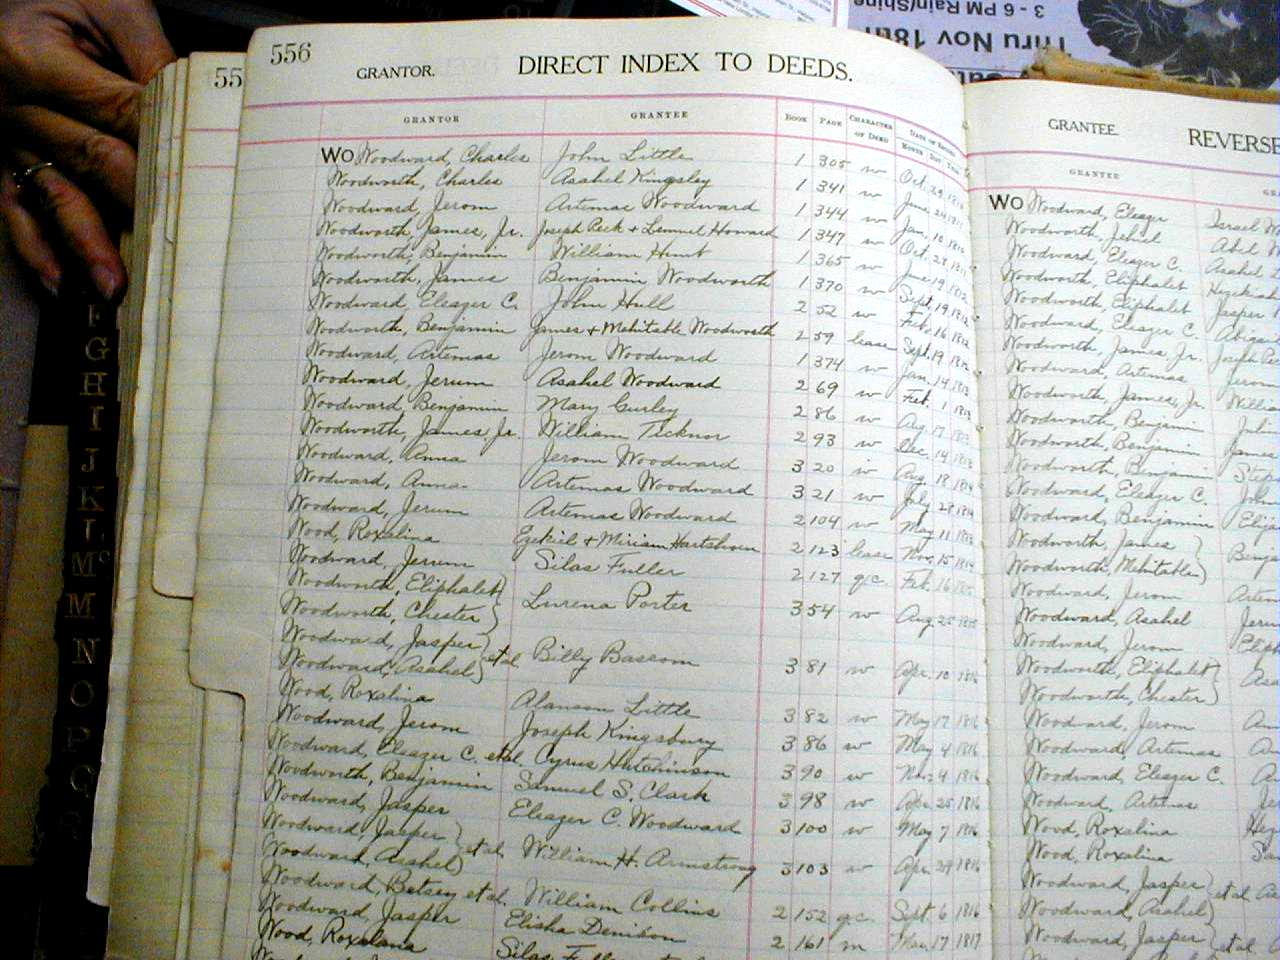 3 - 6 PM Rain/Shine
Thru Nov 18th
55
556
GRANTOR.
DIRECT INDEX TO DEEDS.
GRANTOR
GRANTEE
BOOK
PAGE
CHARACTER OF DEED
DATE OF RECORD
MONTH DAY YEAR
WO Woodward, Charles John Little 1 305 w Oct. 29
Woodworth, Charles Asahel Kingsley 1 341 w June 24
Woodward, Jerom Artemas Woodward 1 344 w Jan. 10
Woodworth, James, Jr. Joseph Peck & Lemuel Howard 1 347 w Oct. 28
Woodworth, Benjamin William Hunt 1 365 w June 19 1812
Woodworth, James Benjamin Woodworth 1 370 w Sept. 19 1812
Woodward, Eleazer C. John Hull 2 52 w Feb. 16
Woodworth, Benjamin James & Mehitable Woodworth 2 59 lease Sept. 19
Woodward, Artemas Jerom Woodward 1 374 w Jan. 14 1813
Woodward, Jerum Asahel Woodward 2 69 w Feb. 1 1813
Woodward, Benjamin Mary Curley 2 86 w Aug. 17 1813
Woodworth, James, Jr. William Ticknor 2 93 w Dec. 14 1813
Woodward, Anna Jerom Woodward 3 20 w Aug. 18 1814
Woodward, Anna Artemas Woodward 3 21 w July 28 1814
Woodward, Jerum Artemas Woodward 2 104 w May 11 1813
Wood, Roxalina Ezekiel & Miriam Hartshorn 2 123 lease Nov. 15 1814
Woodward, Jerum Silas Fuller 2 127 q.c. Feb. 16
Woodworth, Eliphalet
Woodworth, Chester Lurena Porter 3 54 w Aug. 25
Woodward, Jasper
Woodward, Asahel et al Billy Bascom 3 81 w Apr. 10 1816
Wood, Roxalina Alanson Little 3 82 w May 17 1816
Woodward, Jerom Joseph Kingsbury 3 86 w May 4 1816
Woodward, Eleazer C. et al. Cyrus Hutchinson 3 90 w Nov. 4 1816
Woodworth, Benjamin Samuel S. Clark 3 98 w Apr. 25 1816
Woodward, Jasper Eleazer C. Woodward 3 100 w May 7 1816
Woodward, Jasper
Woodward, Asahel et al. William H. Armstrong 3 103 w Apr. 29 1816
Woodward, Betsey et al. William Collins 2 152 q.c. Sept. 6 1816
Woodward, Jasper Elisha Denison 2 161 m Mar. 17 1817
Wood, Roxalana Silas
GRANTEE.
REVERSE
GRANTEE
WO Woodward, Eleazr Israel
Woodworth, Jehiel Abel
Woodward, Eleazer C. Asahel
Woodworth, Eliphalet Hezekiah
Woodworth Eliphalet Jasper
Woodward, Eleazer C.
Woodworth, James, Jr. Joseph
Woodward, Artemas Jerom
Woodworth, James, Jr.
Woodworth, Benjamin
Woodworth, Benjamin James
Woodworth, Benjamin
Woodward, Eleazer C. John
Woodward, Benjamin
Woodworth, James
Woodworth, Mehitable
Woodward, Jerom
Woodward, Asahel
Woodward, Jerom
Woodworth, Eliphalet
Woodworth, Chester
Woodward, Jerom
Woodward, Artemas
Woodward, Eleazer C.
Woodward, Artemas
Wood, Roxalina
Wood, Roxalina
Woodward, Jasper
Woodward, Asahel et al
Woodward, Jasper et al
F
G
H
I
J
K
L
Mc
M
N
O
P
Q